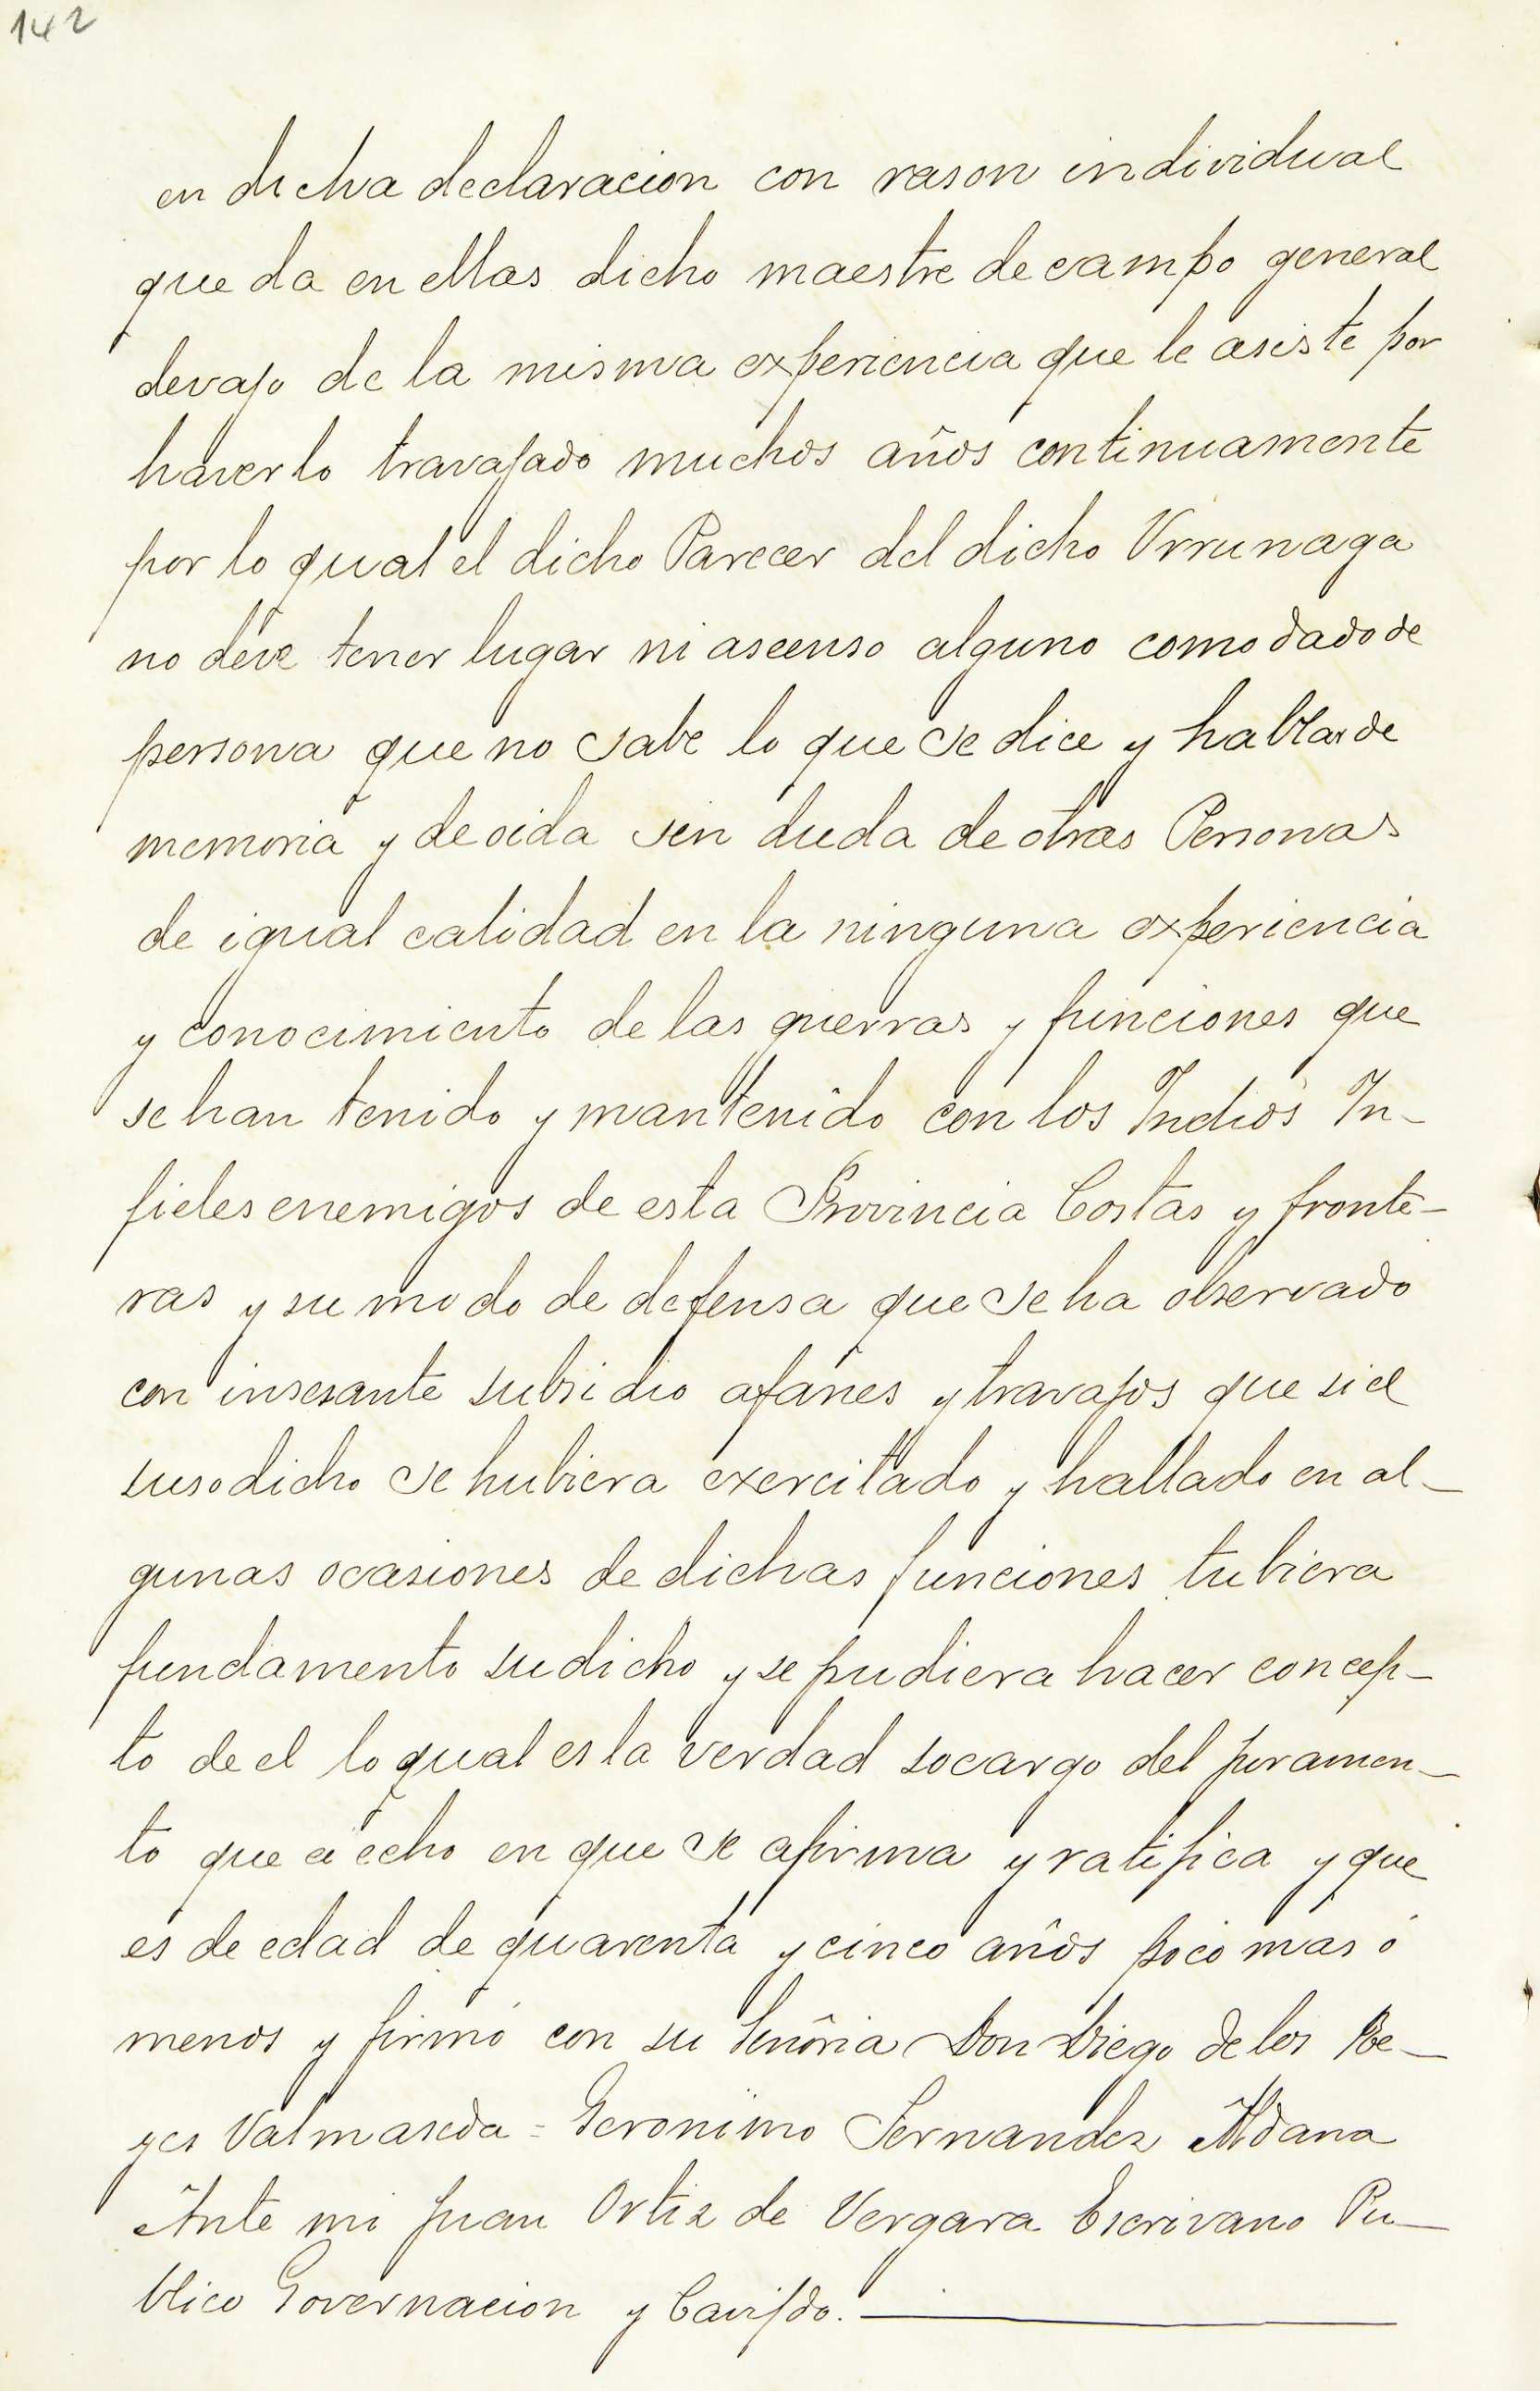 142
en dicha declaracion con rason individual
que da en ellas dicho maestre de campo general
devajo de la misma experiencia que le asiste por
haverlo travajado muchos años continuamente
por lo qual el dicho Parecer del dicho Vrrunaga
no deve tener lugar ni ascenso alguno como dado de
persona que no sabe lo que se dice y hablar de
memoria y de oida sin duda de otras Personas
de igual calidad en la ninguna experiencia
y conocimiento de las guerras y funciones que
se han tenido y mantenido con los Indios In-
fieles enemigos de esta Provincia Costas y fronte-
ras y su modo de defensa que se ha observado
con insesante subsidio afanes y travajos que si el
susodicho se hubiera exercitado y hallado en al-
gunas ocasiones de dichas funciones tubiera
fundamento su dicho y se pudiera hacer concep-
to de el lo qual es la verdad socargo del juramen-
to que a echo en que se afirma y ratifica y que
es de edad de quarenta y cinco años poco mas ó
menos y firmó con su Señoria Don Diego de los Re-
yes Valmaseda = Geronimo Fernandez Aldana
Ante mi Juan Ortiz de Vergara Escrivano Pu-
blico Governacion y Cavildo.